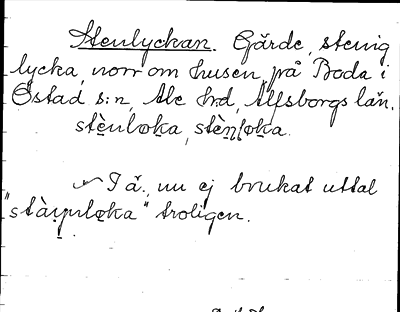 Stenlyckan. Gärde, stenig
lycka, norr om husen, på Boda i
Östad s:n, Ale hrd, Älfsborgs län.
stènlo̱ka, stèn̥lo̱ka.
I ä. nu ej brukat uttal
"stàynlo̱ka" troligen.